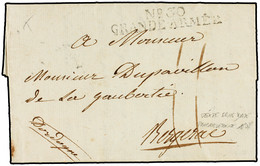 Nº.30
GRANDE ARMÉE
A Monsieur
Monsieur Dupavillon
de La gaubertie
Bergerac
Dordogne